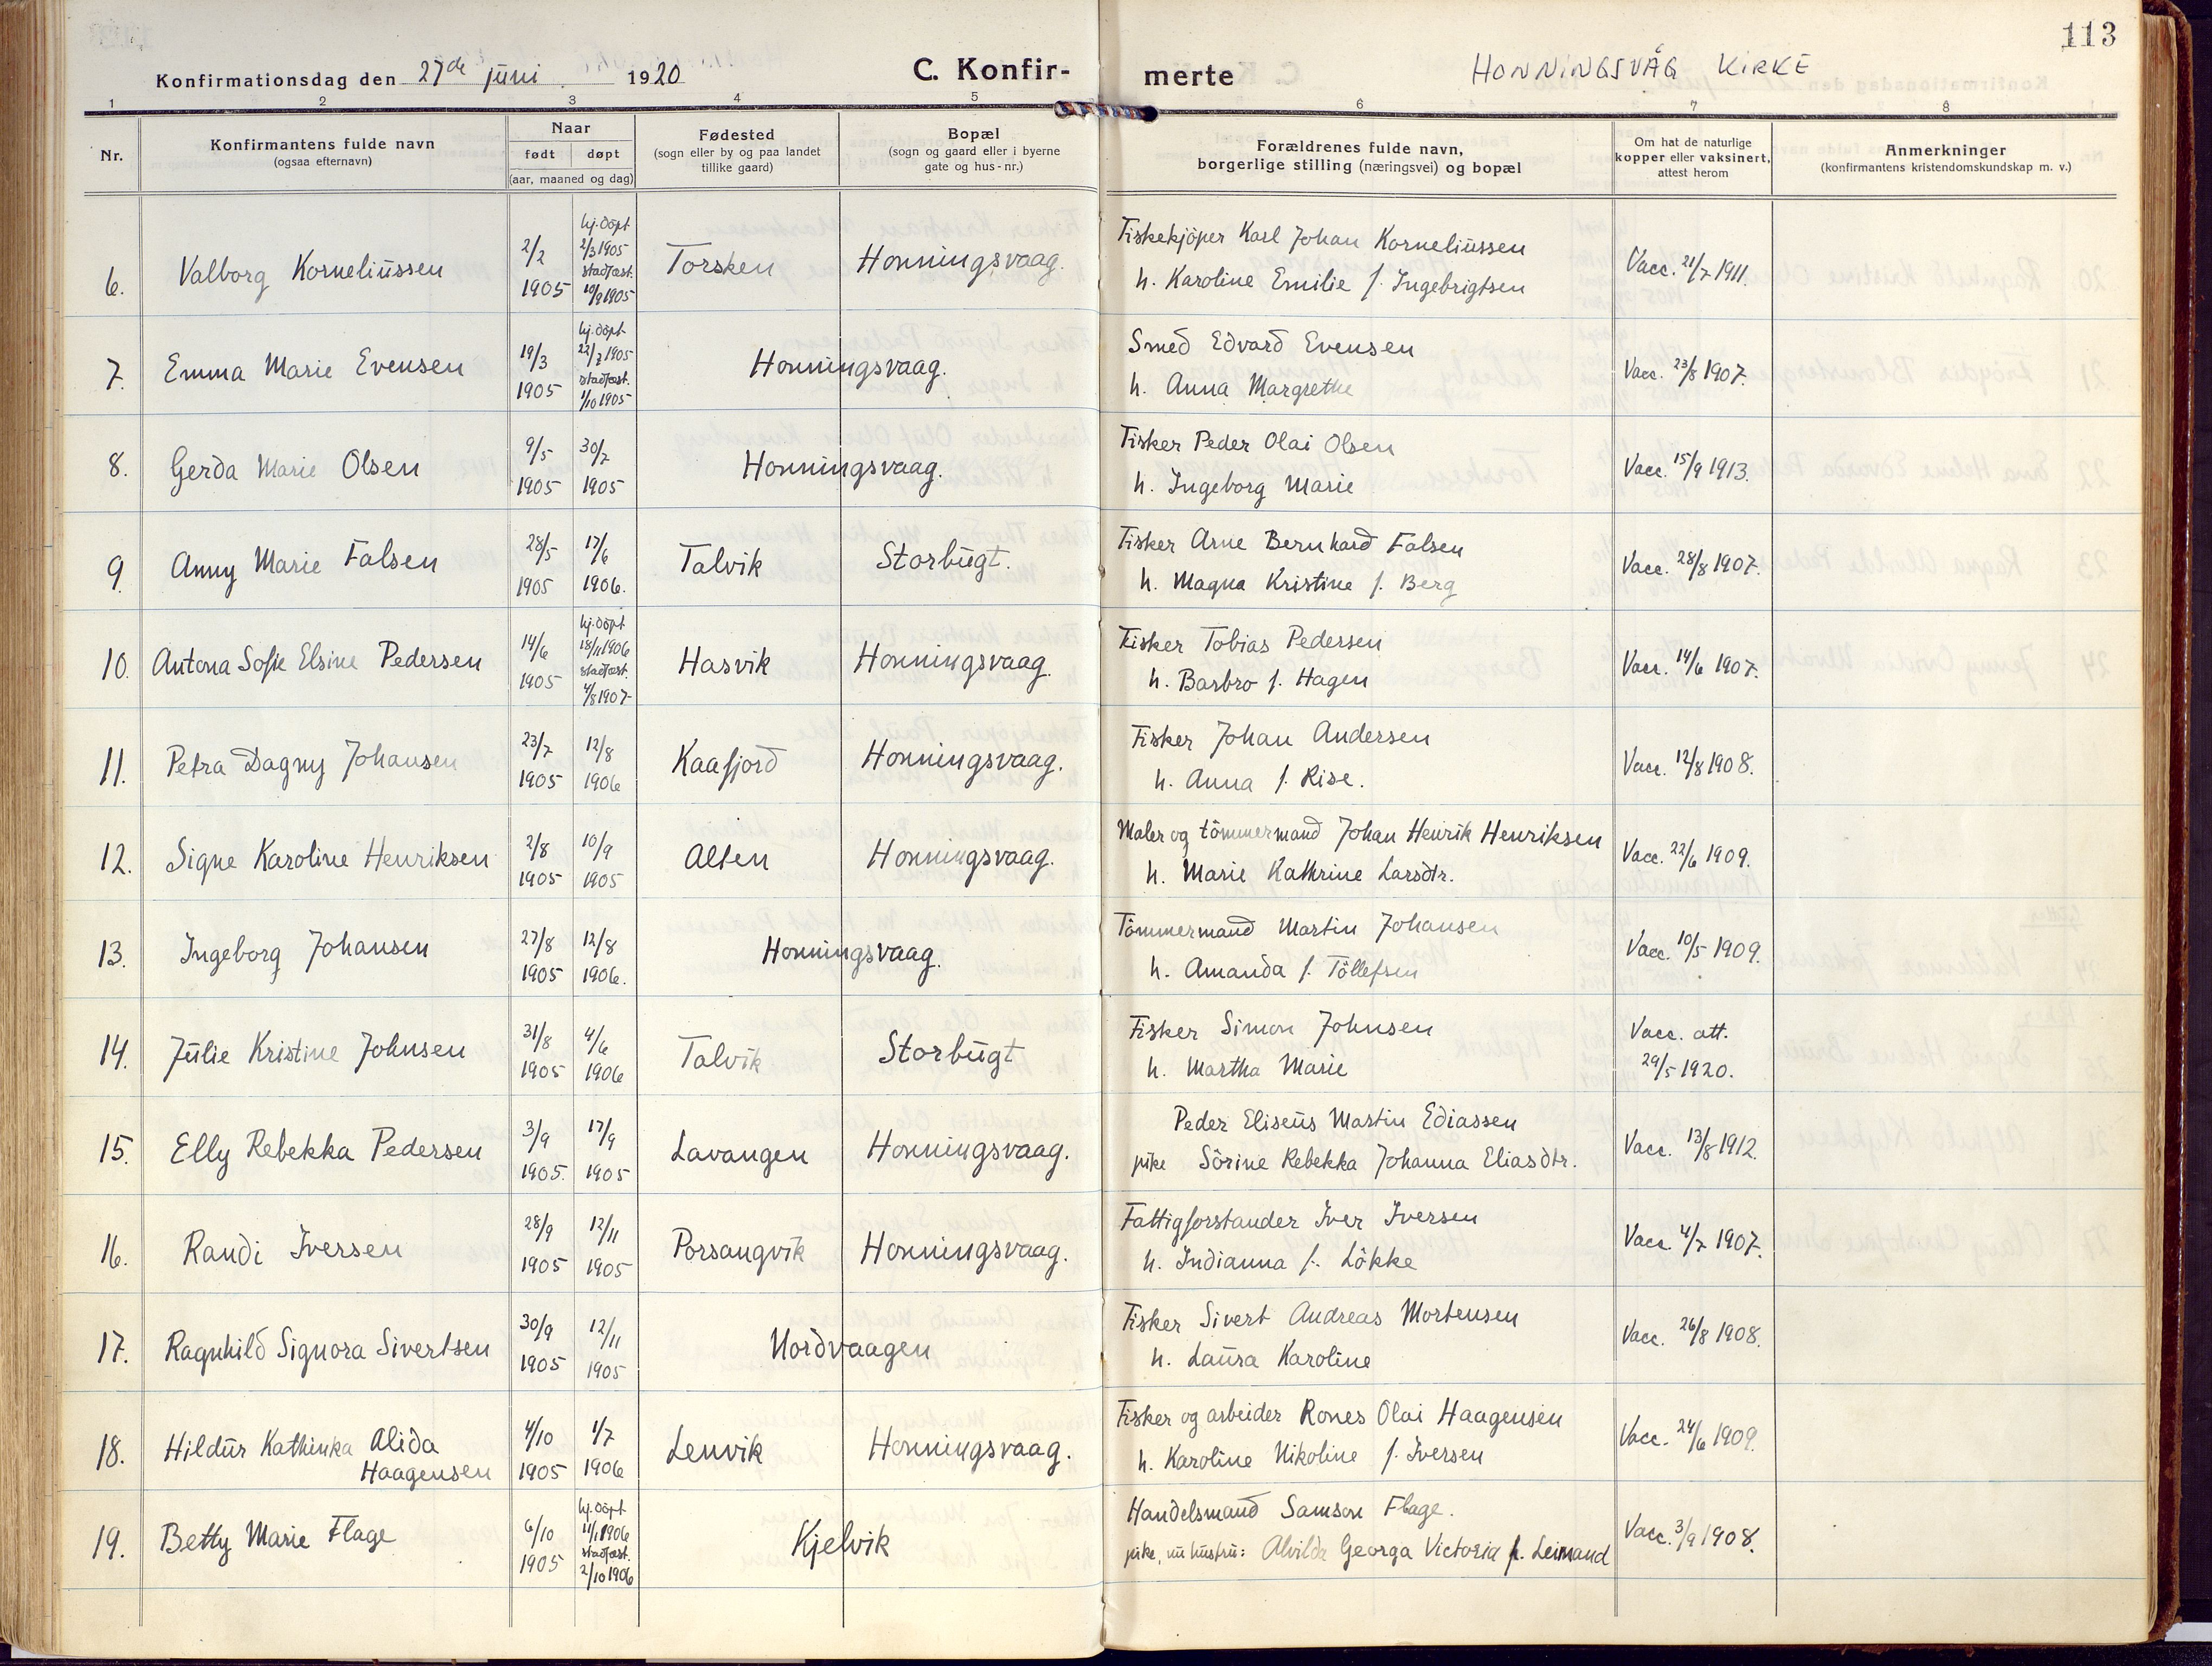 113
Konfirmationsdag den 27de juni 1920
C. Konfir-merte
HONNINGSVÅG KIRKE
1 2 3 4 5 6 7 8
Nr.
Konfirmantens fulde navn
(ogsaa efternavn)
Naar
født døpt
(aar, maaned og dag)
Fødested
(sogn eller by og paa landet
tillike gaard)
Bopæl
(sogn og gaard eller i byerne
gate og hus-nr.)
Forældrenes fulde navn,
borgerlige stilling (næringsvei) og bopæl
Om hat de naturlige
kopper eller vaksinert,
attest herom
Anmerkninger
(konfirmantens kristendomskundskap m. v.)
6. Valborg Korneliussen 2/2 1905 hj. döpt 2/3 1905 stadfæst. 10/9 1905 Torsken Honningsvaag. Fiskekjöper Karl Johan Korneliussen
h. Karoline Emilie f. Ingebrigtsen Vacc. 21/7 1911.
7. Emma Marie Evensen 19/3 1905 hj. döpt 22/7 1905 stadfæst. 1/10 1905 Honningsvaag. Smed Edvard Evensen
h. Anna Margrethe Vacc. 23/8 1907.
8. Gerda Marie Olsen 9/5 1905 30/7 1905 Honningsvaag. Fisker Peder Olai Olsen
h. Ingeborg Marie Vacc. 15/9 1913.
9. Anny Marie Falsen 28/5 1905 17/6 1906. Talvik Storbugt. Fisker Arne Bernhard Falsen
h. Magna Kristine f. Berg Vacc. 28/8 1907.
10. Antona Sofie Elsine Pedersen 14/6 1905 hj. döpt 18/11 1906 stadfæst. 4/8 1907 Hasvik Honningsvaag. Fisker Tobias Pedersen
h. Barbro f. Hagen Vacc. 14/6 1907.
11. Petra Dagny Johansen 23/7 1905 12/8 1906 Kaafjord Honningsvaag. Fisker Johan Andersen
h. Anna f. Rise. Vacc. 12/8 1908.
12. Signe Karoline Henriksen 2/8 1905 10/9 1905 Alten Honningsvaag. Maler og tömmermand Johan Henrik Henriksen
h. Marie Kathrine Larsdtr. Vacc. 22/6 1909.
13. Ingeborg Johansen 27/8 1905 12/8 1906. Honningsvaag. Tömmermand Martin Johansen
h. Amanda f. Töllefsen Vacc. 10/5 1909.
14. Julie Kristine Johnsen 31/8 1905 4/6 1906 Talvik Storbugt Fisker Simon Johnsen
h. Martha Marie Vacc. att. 29/5 1920.
15. Elly Rebekka Pedersen 3/9 1905. 17/9 1905 Lavangen Honningsvaag. Peder Eliseus Martin Ediassen
pike Sörine Rebekka Johanna Eliasdtr. Vacc. 13/8 1912.
16. Randi Iversen 28/9 1905 12/11 1905 Porsangvik Honningsvaag. Fattigforstander Iver Iversen
h. Indianna f. Lökke Vacc. 4/7 1907.
17. Ragnhild Signora Sivertsen 30/9 1905 12/11 1905 Nordvaagen Fisker Sivert Andreas Mortensen
h. Laura Karoline Vacc. 26/8 1908.
18. Hildur Kathinka Alida
Haagensen 4/10 1905 1/7 1906 Lenvik Honningsvaag. Fisker og arbeider Rones Olai Haagensen
h. Karoline Nikoline f. Iversen Vacc. 24/6 1909.
19. Betty Marie Flage 6/10 1905 hj. döpt 11/1 1906 stadfæst. 2/10 1906 Kjelvik Handelsmand Samson Flage.
pike, nu hustru: Alvilda Georga Victoria f. Leimand Vacc. 3/9 1908.